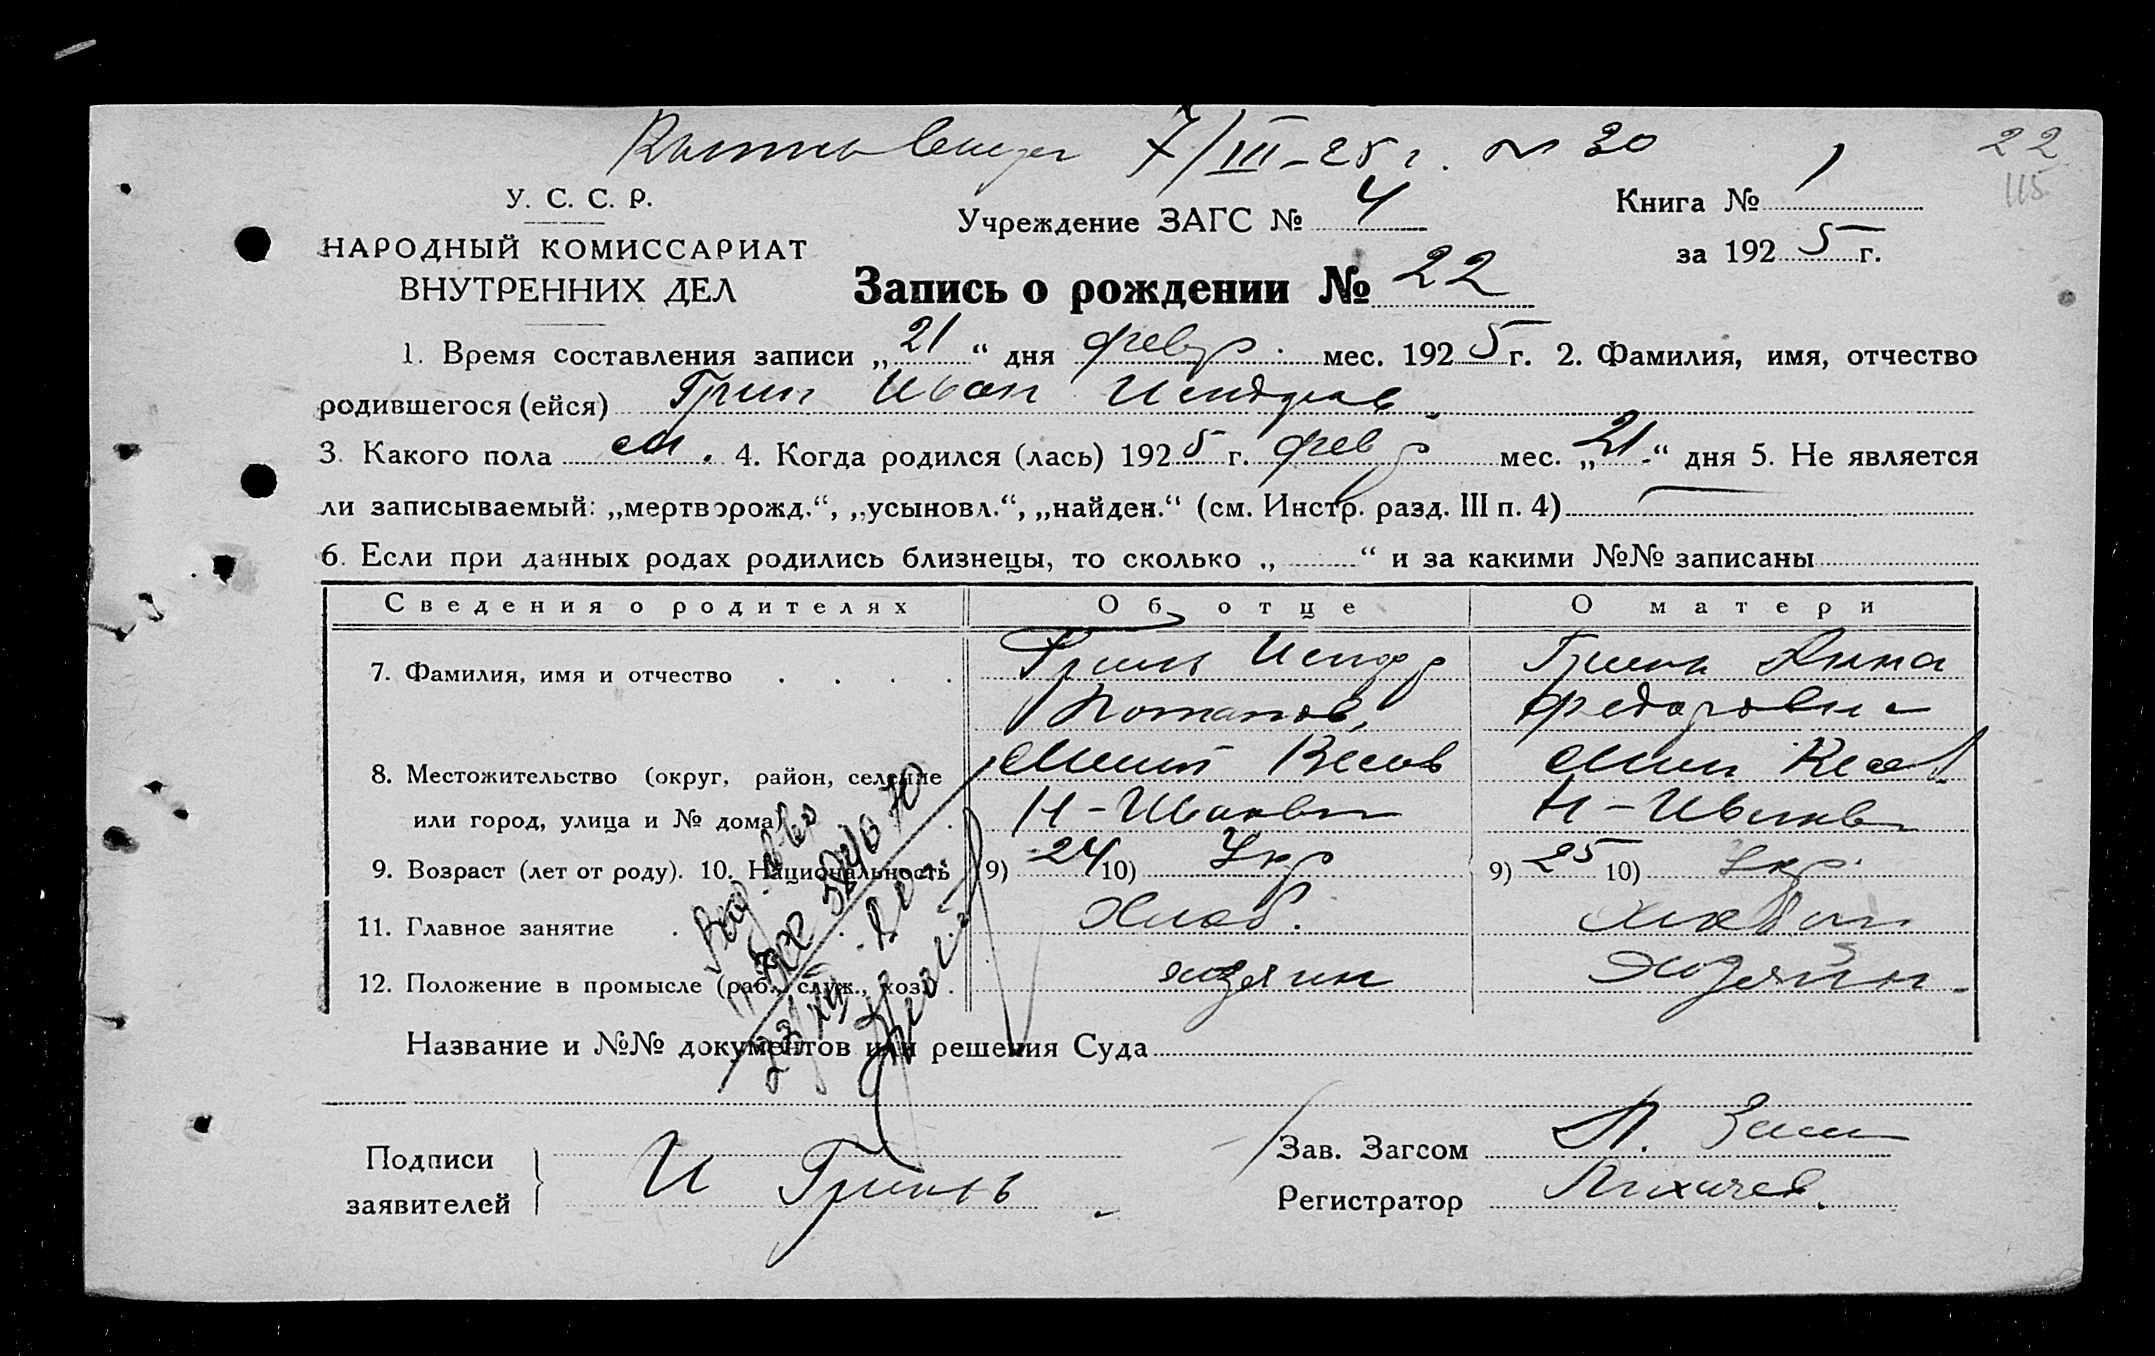 7/III-25 г. № 30
22
115
У. С. С. Р.
НАРОДНЫЙ КОМИССАРИАТ
ВНУТРЕННИХ ДЕЛ
Учреждение ЗАГС № 4
Книга № 1
за 1925 г.
Запись о рождении № 22
1. Время составления записи „21“ дня февр. мес. 1925 г. 2. Фамилия, имя, отчество
родившегося (ейся) Гринь Иван Исидров.
3. Какого пола м. 4. Когда родился (лась) 1925 г. февр мес. „21“ дня 5. Не является
ли записываемый: „мертворожд.“, „усыновл.“, „найден.“ (см. Инстр. разд. III п. 4) —
6. Если при данных родах родились близнецы, то сколько „ “ и за какими №№ записаны
Сведения о родителях Об отце О матери
7. Фамилия, имя и отчество . . . . Гринь Исидр Гринь Анна
Потапов, Федоровна
8. Местожительство (округ, район, селение
или город, улица и № дома) Н-Ивановк Н-Ивановк
9. Возраст (лет от роду). 10. Национальность 9) 24 10) Укр 9) 25 10) Укр.
11. Главное занятие . Хлеб.
12. Положение в промысле (раб., служ., хоз.) . хозяин Хозяйн.
Название и №№ документов или решения Суда
Подписи
заявителей
И Гринь
Зав. Загсом
Регистратор